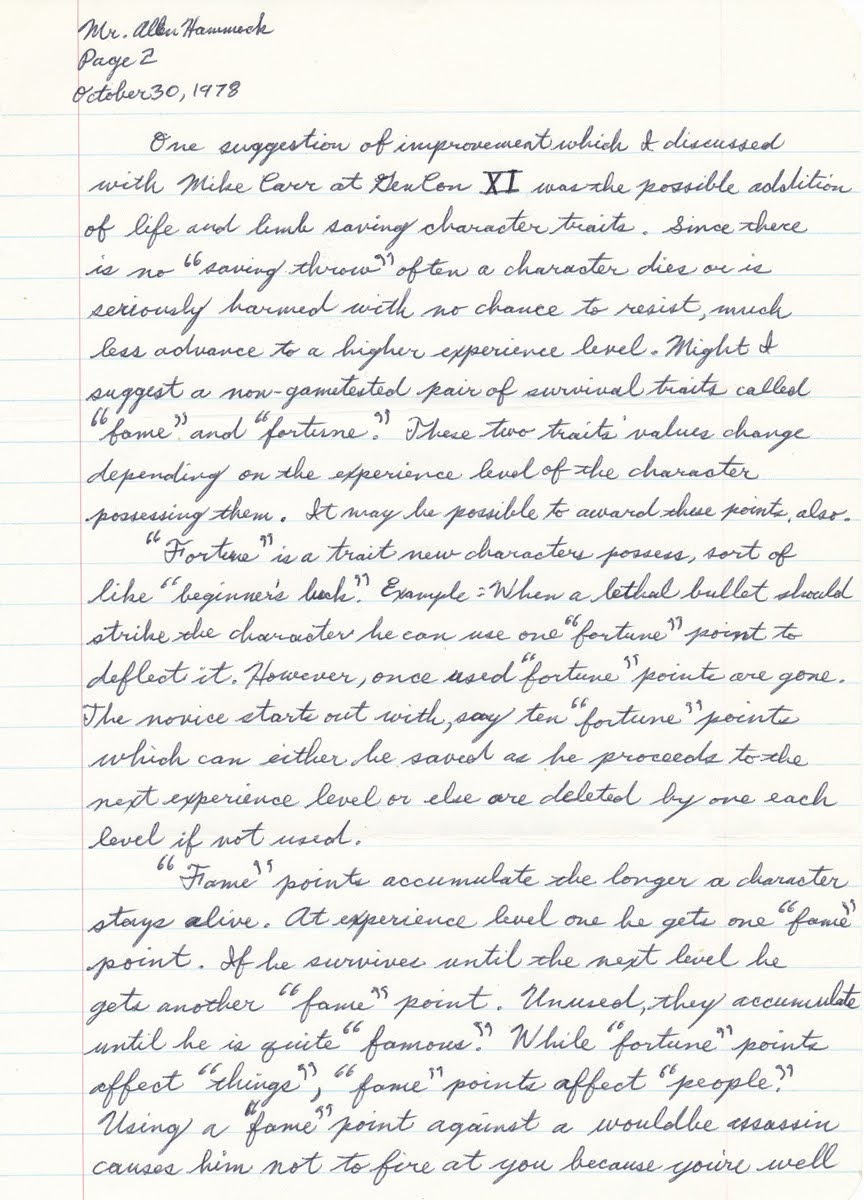 Mr. Allen Hammack
Page 2
October 30, 1978
One suggestion of improvement which I discussed
with Mike Carr at GenCon XI was the possible addition
of life and limb saving character traits. Since there
is no "saving throw" often a character dies or is
seriously harmed with no chance to resist, much
less advance to a higher experience level. Might I
suggest a non-gametested pair of survival traits called
"fame" and "fortune." These two traits' values change
depending on the experience level of the character
possessing them. It may be possible to award these points, also.
"Fortune" is a trait new characters possess, sort of
like "beginner's luck." Example: When a lethal bullet should
strike the character he can use one "fortune" point to
deflect it. However, once used "fortune" points are gone.
The novice starts out with, say ten "fortune" points
which can either be saved as he proceeds to the
next experience level or else are deleted by one each
level if not used.
"Fame" points accumulate the longer a character
stays alive. At experience level one he gets one "fame"
point. If he survives until the next level he
gets another "fame" point. Unused, they accumulate
until he is quite "famous." While "fortune" points
affect "things", "fame" points affect "people."
Using a "fame" point against a wouldbe assassin
causes him not to fire at you because you're well